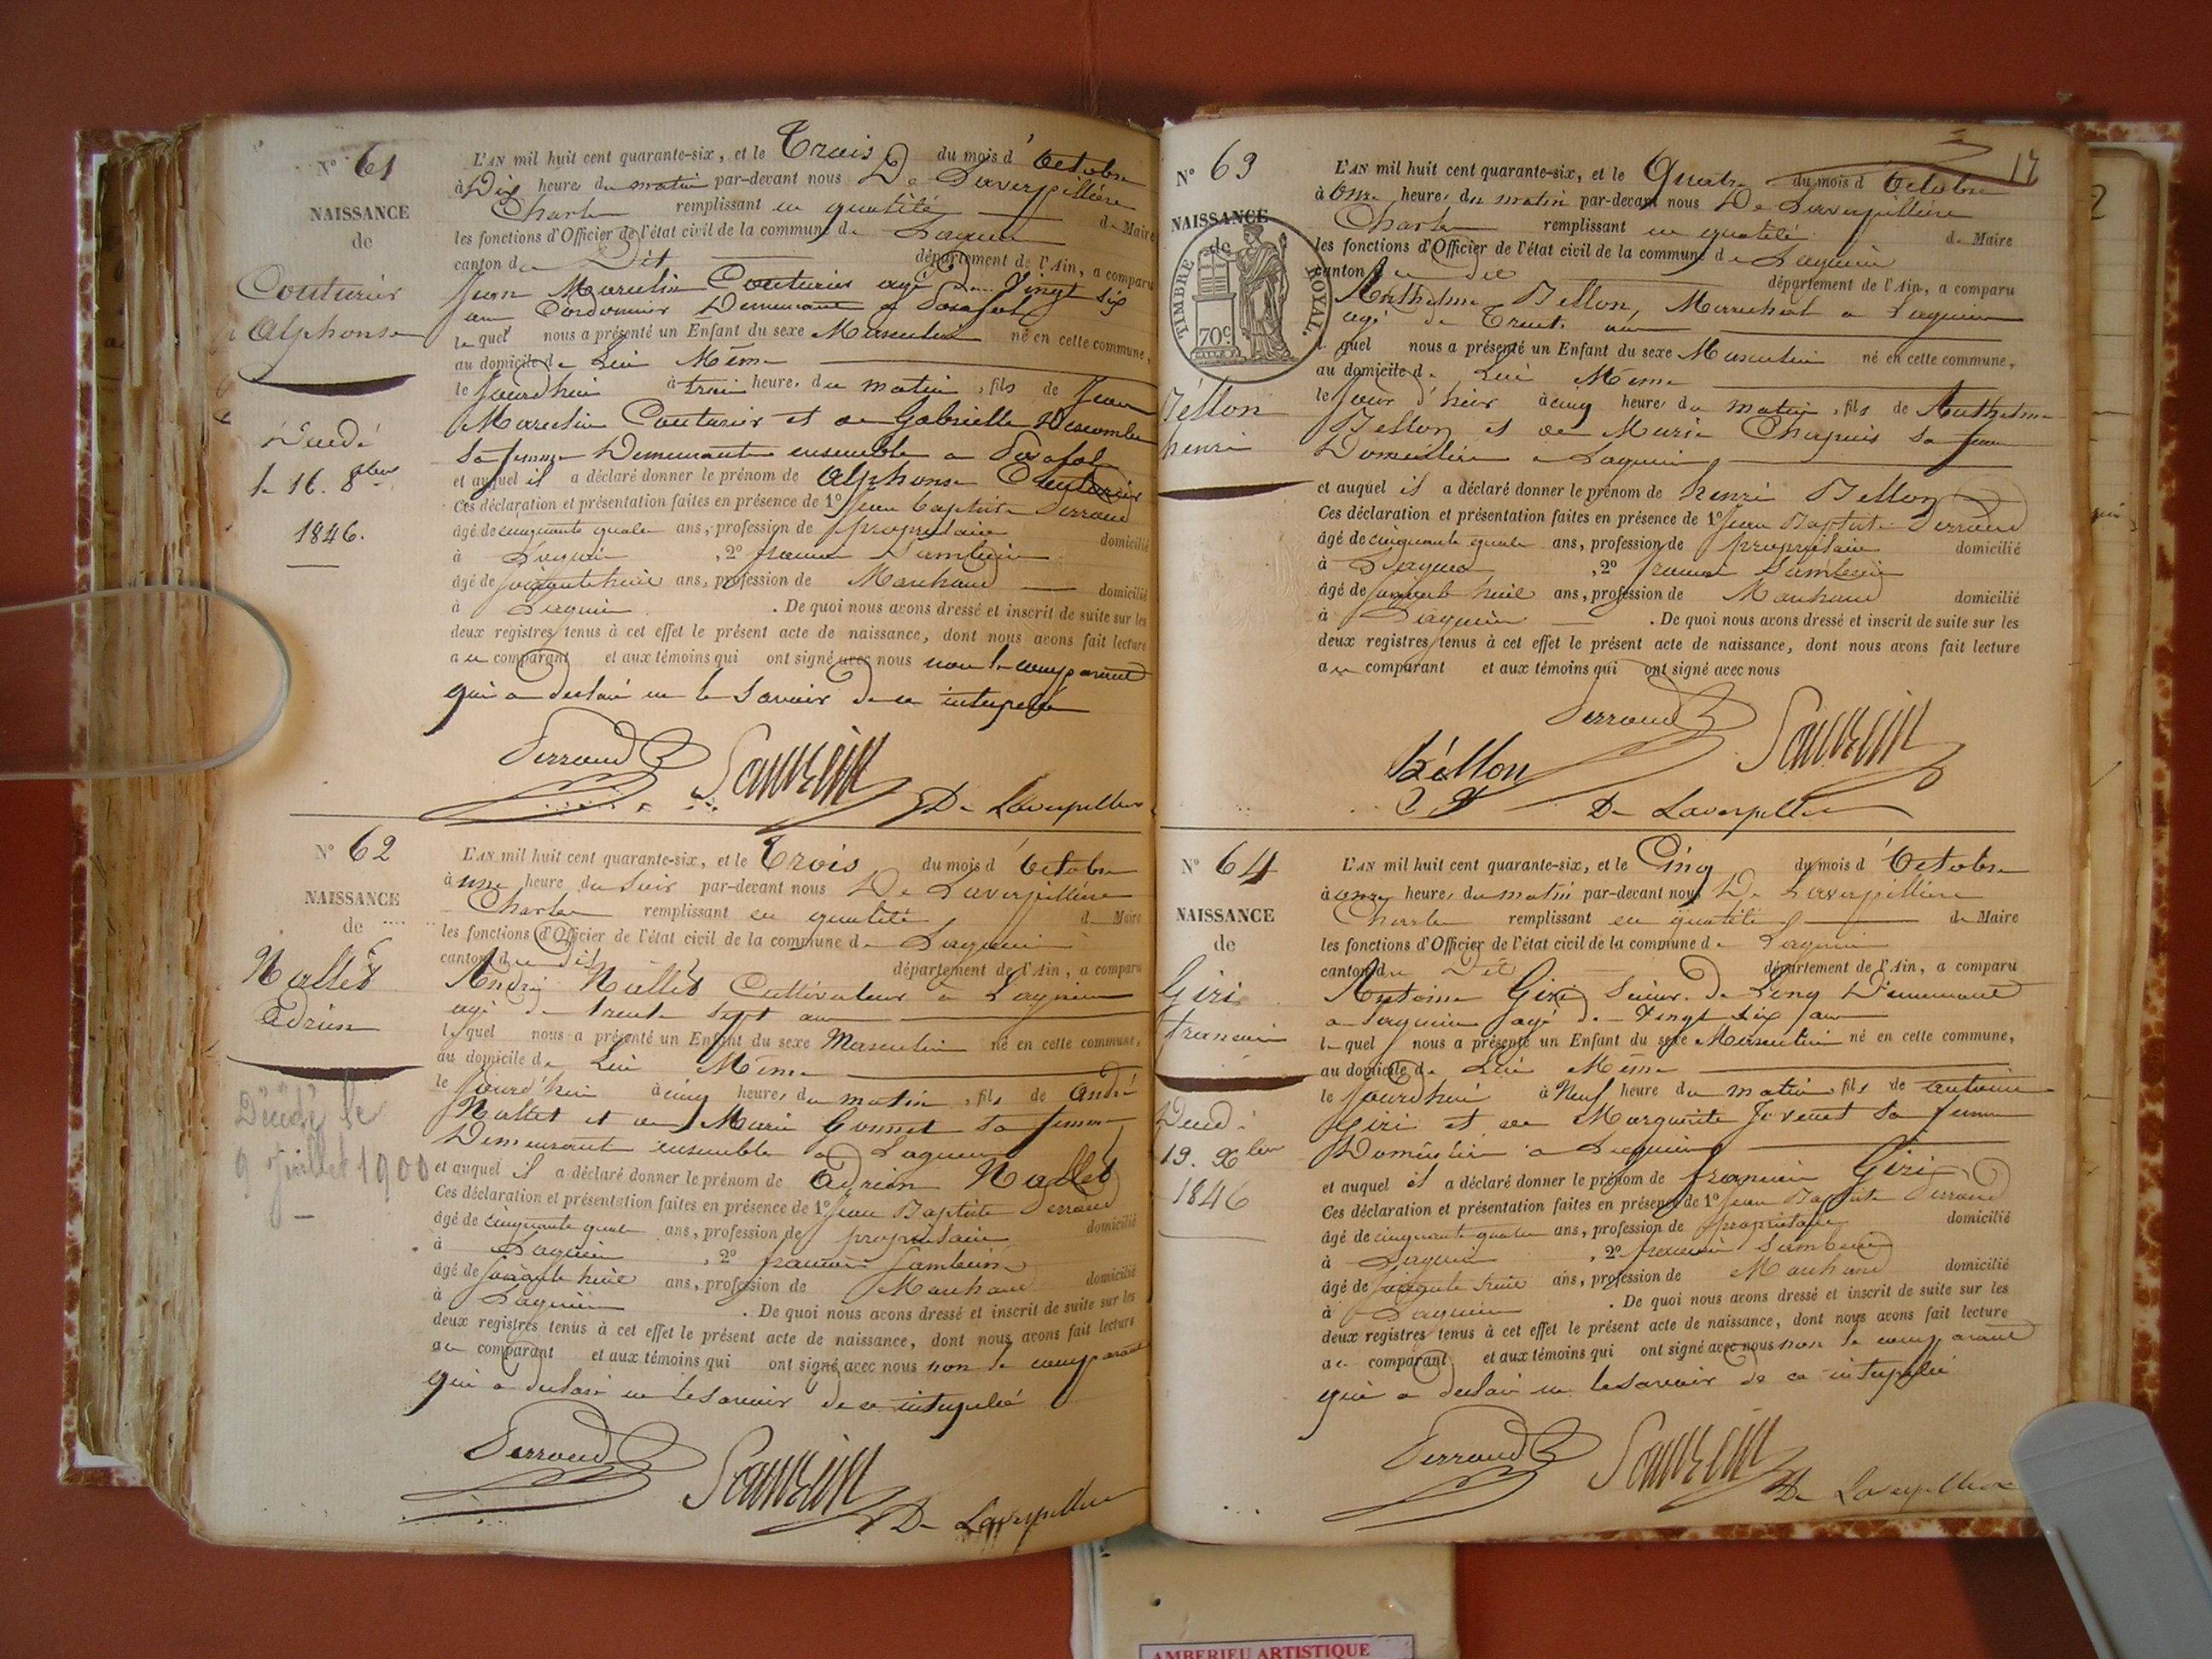 N° 61
NAISSANCE
de
Couturier
Alphonse
Décédé
le 16. 8bre
1846.
L'AN mil huit cent quarante-six, et le Trois du mois d'Octobre
à Dix heures du matin par-devant nous De Laverpillière
Charles remplissant en qualité de Maire
les fonctions d'Officier de l'état civil de la commune de Lagnieu
canton du Dit département de l'Ain, a comparu
Jean Marcelin Couturier agé de Vingt six
ans Cordonnier Demeurant a Posafol
le quel nous a présenté un Enfant du sexe Masculin né en cette commune,
au domicile de Lui Même
le jourd'hui à trois heures du matin, fils de Jean
Marcelin Couturier et de Gabrielle
Sa femme Demeurant ensemble a Posafol
et auquel il a déclaré donner le prénom de Alphonse Couturier
Ces déclaration et présentation faites en présence de 1° Jean Baptiste Perraud
âgé de cinquante quatre ans, profession de propriétaire domicilié
à Lagnieu, 2° françois
âgé de soixante huit ans, profession de Marchand domicilié
à Lagnieu. De quoi nous avons dressé et inscrit de suite sur les
deux registres tenus à cet effet le présent acte de naissance, dont nous avons fait lecture
au comparant et aux témoins qui ont signé avec nous non le comparant
qui a declaré ne le savoir de ce interpellé
Perraud De Laverpillière
N° 62
NAISSANCE
de
Nallet
Adrien
Décédé le
9 juillet 1900
L'AN mil huit cent quarante-six, et le Trois du mois d'Octobre
à une heure du Soir par-devant nous De Laverpillière
Charles remplissant en qualité de Maire
les fonctions d'Officier de l'état civil de la commune de Lagnieu
canton du dit département de l'Ain, a comparu
André Nallet Cultivateur a Lagnieu
agé de trente sept ans
lequel nous a présenté un Enfant du sexe Masculin né en cette commune,
au domicile de Lui Même
le jourd'hui à cinq heures du matin, fils de André
Nallet et de Marie Gonnet sa femme
Demeurant ensemble a Lagnieu
et auquel il a déclaré donner le prénom de Adrien Nallet
Ces déclaration et présentation faites en présence de 1° Jean Baptiste Perraud
âgé de cinquante quatre ans, profession de propriétaire domicilié
à Lagnieu, 2° françois
âgé de soixante huit ans, profession de Marchand domicilié
à Lagnieu. De quoi nous avons dressé et inscrit de suite sur les
deux registres tenus à cet effet le présent acte de naissance, dont nous avons fait lecture
au comparant et aux témoins qui ont signé avec nous non le comparant
qui a declaré ne le savoir de ce interpellé
Perraud De Laverpillière
17
N° 63
NAISSANCE
de
TIMBRE ROYAL.
70c
Bellon
henri
L'AN mil huit cent quarante-six, et le Quatre du mois d'Octobre
à Onze heures du matin par-devant nous De Laverpillière
Charles remplissant en qualité de Maire
les fonctions d'Officier de l'état civil de la commune de Lagnieu
canton du dit département de l'Ain, a comparu
Anthelme Bellon, Marechal a Lagnieu
agé de Trente ans
le quel nous a présenté un Enfant du sexe Masculin né en cette commune,
au domicile de Lui Même
le jour d'hier à cinq heures du matin, fils de Anthelme
Bellon et de Marie Chapuis sa femme
Domiciliés a Lagnieu
et auquel il a déclaré donner le prénom de henri Bellon
Ces déclaration et présentation faites en présence de 1° Jean Baptiste Perraud
âgé de cinquante quatre ans, profession de propriétaire domicilié
à Lagnieu, 2° françois
âgé de soixante huit ans, profession de Marchand domicilié
à Lagnieu. De quoi nous avons dressé et inscrit de suite sur les
deux registres tenus à cet effet le présent acte de naissance, dont nous avons fait lecture
au comparant et aux témoins qui ont signé avec nous
Perraud
Béllon
De Laverpillière
N° 64
NAISSANCE
de
Giri
francois
Décédé
19. Xbre
1846
L'AN mil huit cent quarante-six, et le Cinq du mois d'Octobre
à onze heures du matin par-devant nous De Laverpillière
Charles remplissant en qualité de Maire
les fonctions d'Officier de l'état civil de la commune de Lagnieu
canton du Dit département de l'Ain, a comparu
Antoine Giri Scieur De Long Demeurant
a Lagnieu agé de Vingt six ans
le quel nous a présenté un Enfant du sexe Masculin né en cette commune,
au domicile de Lui Même
le jourd'hui à Neuf heure du matin fils de antoine
Giri et de Marguerite Jovenet sa femme
Domiciliés a Lagnieu
et auquel il a déclaré donner le prénom de francois Giri
Ces déclaration et présentation faites en présence de 1° Jean Baptiste Perraud
âgé de cinquante quatre ans, profession de propriétaire domicilié
à Lagnieu, 2° francois
âgé de soixante huit ans, profession de Marchand domicilié
à Lagnieu. De quoi nous avons dressé et inscrit de suite sur les
deux registres tenus à cet effet le présent acte de naissance, dont nous avons fait lecture
au comparant et aux témoins qui ont signé avec nous non le comparant
qui a declaré ne le savoir de ce interpellé
Perraud De Laverpillière
AMBERIEU ARTISTIQUE